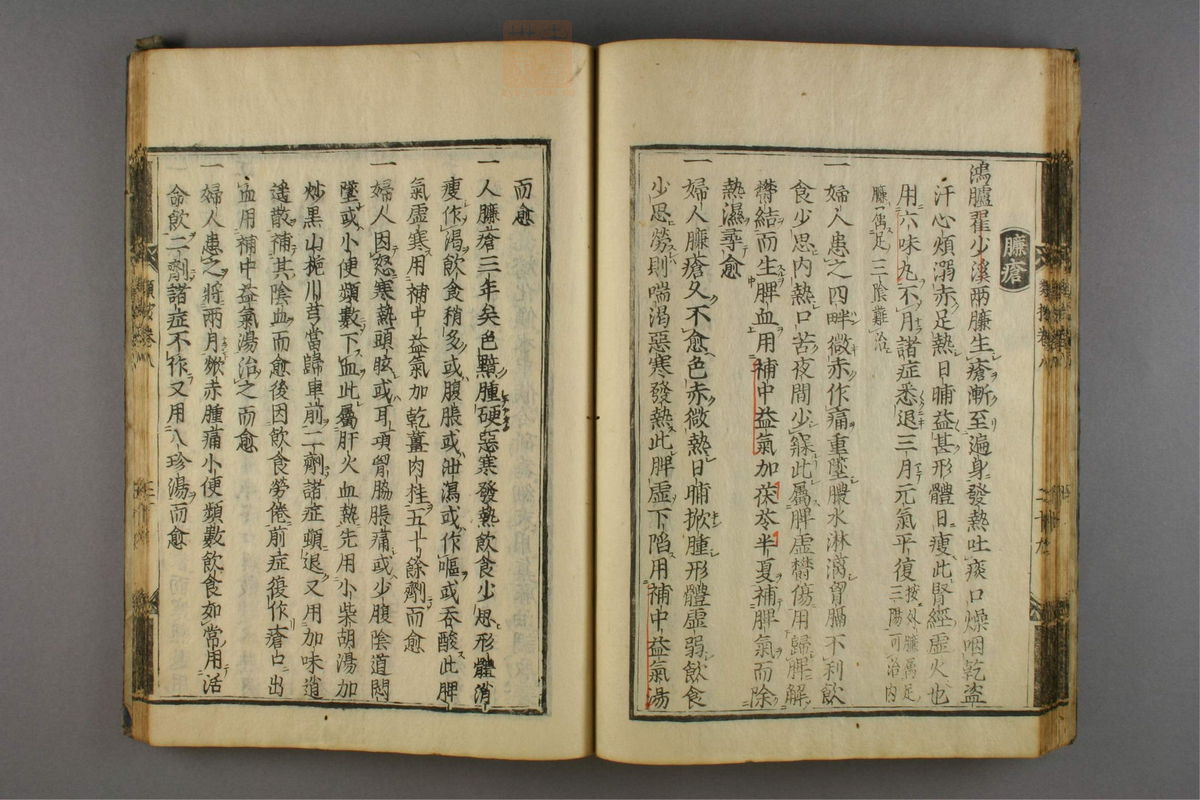 臁瘡
鴻臚翟少溪兩臁生瘡漸至遍身發熱吐痰口燥咽乾盜
汗心煩溺赤足熱日晡益甚形體日瘦此腎經虛火也
用六味丸不月諸症悉退三月元氣平復按外臁屬足三陽可治内
臁屬足三陰難治
一婦人患之四畔微赤作痛重墜膿水淋漓胃膈不利飲
食少思内熱口苦夜間少寐此屬脾虛鬱傷用歸脾解
鬱結而生脾血用補中益氣加茯苓半夏補脾氣而除
熱濕尋愈
一婦人臁瘡久不愈色赤微熱日晡掀腫形體虛弱飲食
少思勞則喘渴惡寒發熱此脾虛下陷用補中益氣湯
而愈
一人臁瘡三年矣色黯腫硬惡寒發熱飲食少思形體消
瘦作渴飲食稍多或腹脹或泄瀉或作嘔或吞酸此脾
氣虛寒用補中益氣加乾薑肉桂五十餘劑而愈
一婦人因怒寒熱頭眩或耳項胷脇脹痛或少腹陰道悶
墜或小便頻數下血此屬肝火血熱先用小柴胡湯加
炒黑山梔川芎當歸車前二劑諸症頓退又用加味逍
遙散補其陰血而愈後因飲食勞倦前症復作瘡口出
血用補中益氣湯治之而愈
一婦人患之將兩月焮赤腫痛小便頻數飲食如常用活
命飲二劑諸症不作又用八珍湯而愈